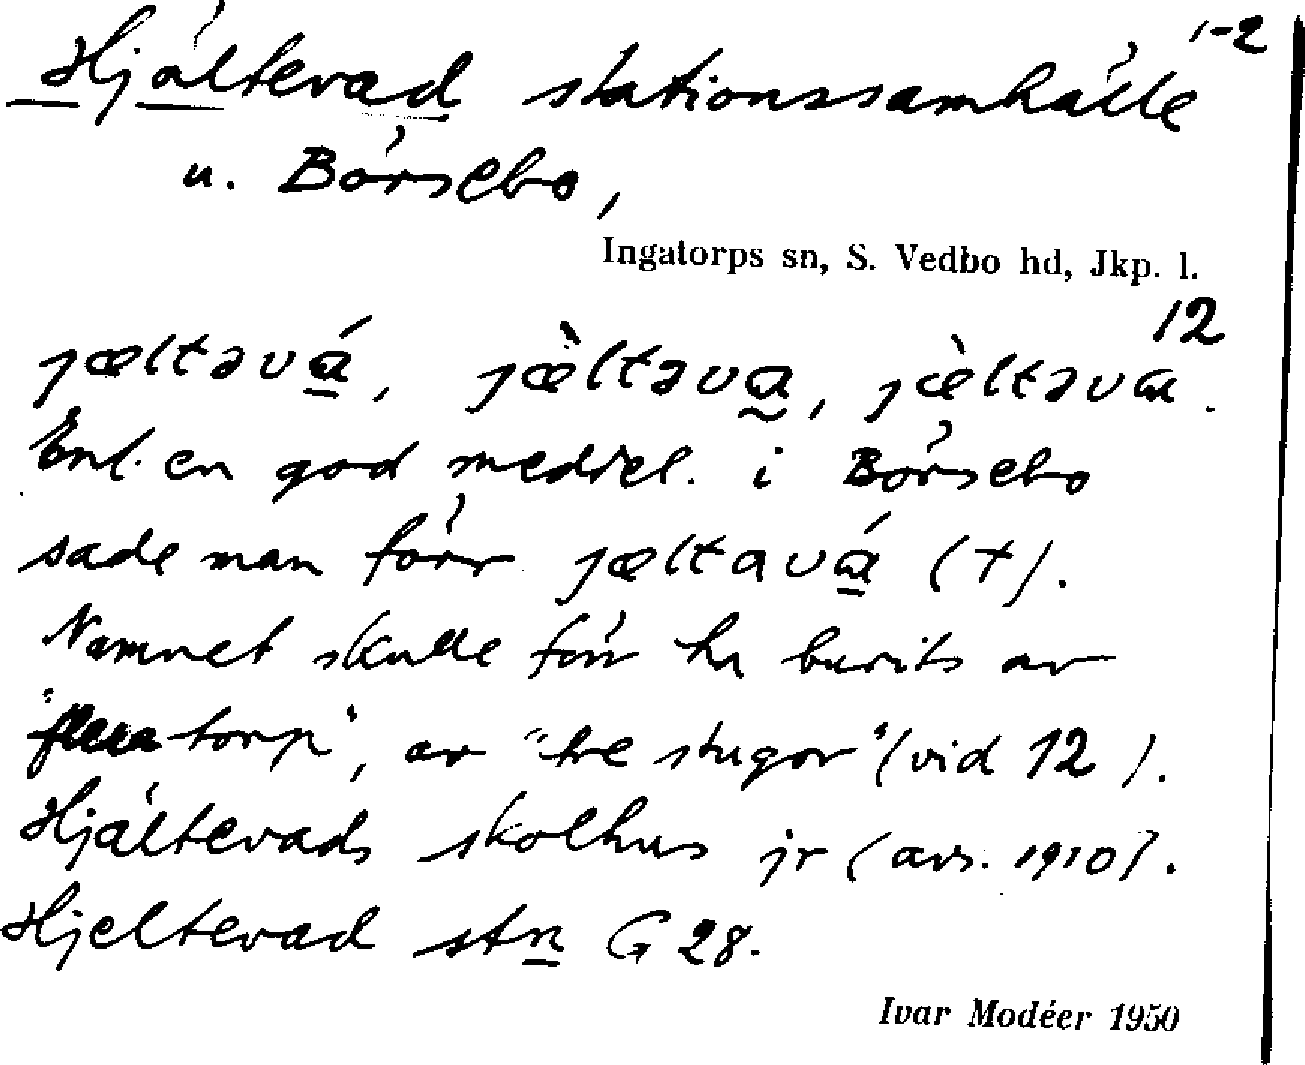 1-2
Hjältevad stationssamhälle
u. Börsebo,
Ingatorps sn, S. Vedbo hd, Jkp. l.
12
jæltəvá̱, jæ̀ltəva̰, jæ̀ltəvɑ.
Enl. en god meddel. i Börsebo
sade man förr jæltavɑ̱́ (†).
Namnet skulle förr ha burits av
"flera torp", av "tre stugor" (vid 12).
Hjältevads skolhus jr (avs. 1910).
Hjeltevad stn G 28.
Ivar Modéer 1950